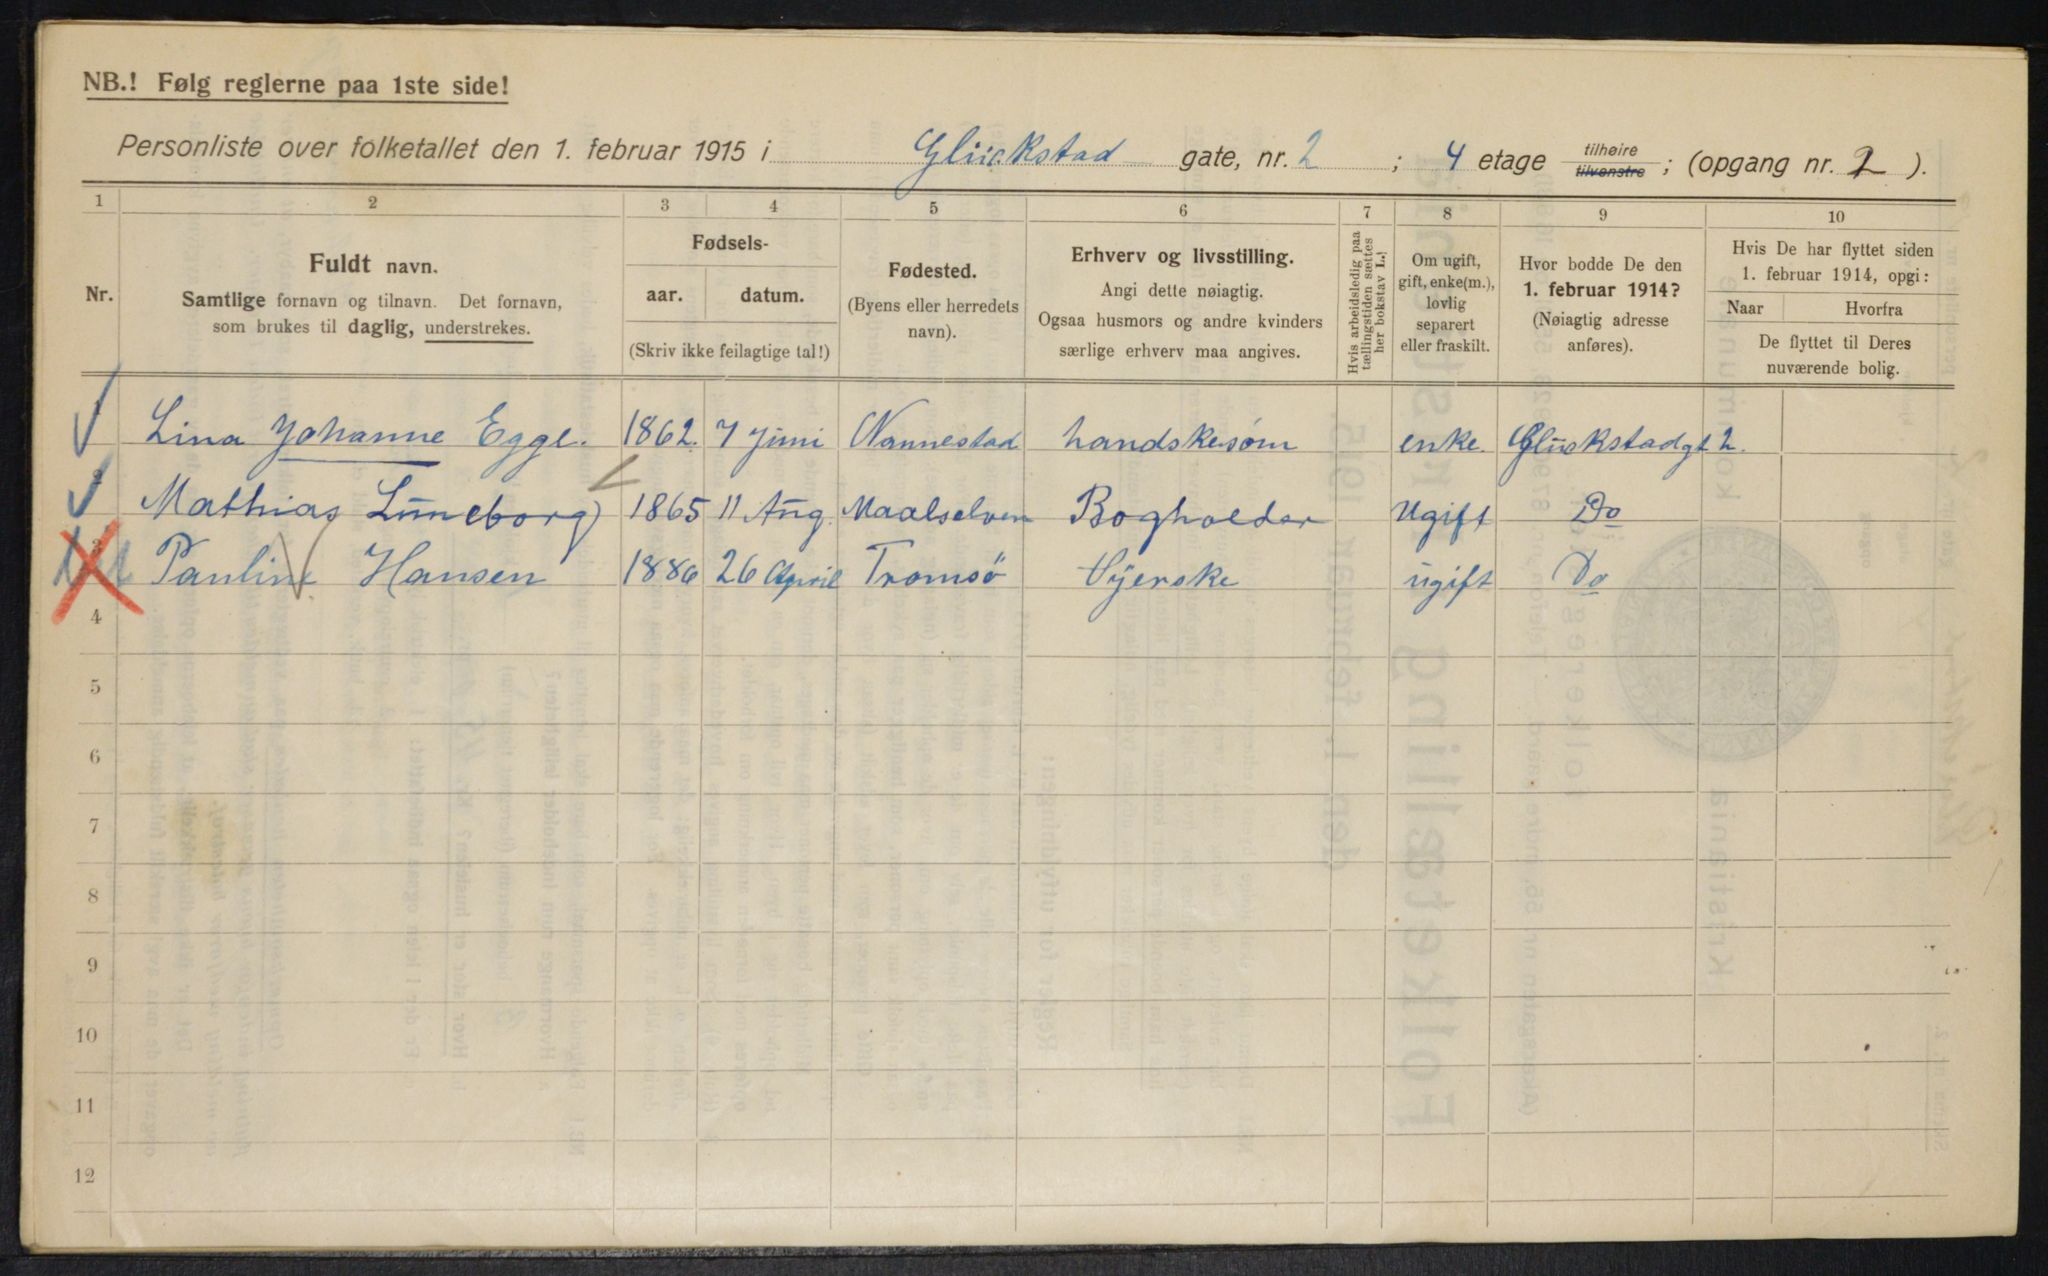 NB.! Følg reglerne paa 1ste side!
Personliste over folketallet den 1. februar 1915 i Glückstad gate, nr. 2 ; 4 etage tilhøire tilvenstre ; (opgang nr. 2 ).
1 2 3 4 5 6 7 8 9 10
Nr.
Fuldt navn.
Samtlige fornavn og tilnavn. Det fornavn,
som brukes til daglig, understrekes.
Fødsels-
aar. datum.
(Skriv ikke feilagtige tal!)
Fødested.
(Byens eller herredets
navn).
Erhverv og livsstilling.
Angi dette nøiagtig.
Ogsaa husmors og andre kvinders
særlige erhverv maa angives.
Hvis arbeidsledig paa
tællingstiden sættes
her bokstav L.
Om ugift,
gift, enke(m.),
lovlig
separert
eller fraskilt.
Hvor bodde De den
1. februar 1914?
(Nøiagtig adresse
anføres).
Hvis De har flyttet siden
1. februar 1914, opgi:
Naar Hvorfra
De flyttet til Deres
nuværende bolig.
Lina Johanne Egge. 1862. 7 Juni Nannestad handskesøm enke. Glückstadgt 2.
2 Mathias Lüneborg 1865 11 Aug. Maalselven Bogholder Ugift Do
3 Pauline Hansen 1886 26 April Tromsö Syerske ugift Do
4
5
6
7
8
9
10
11
12